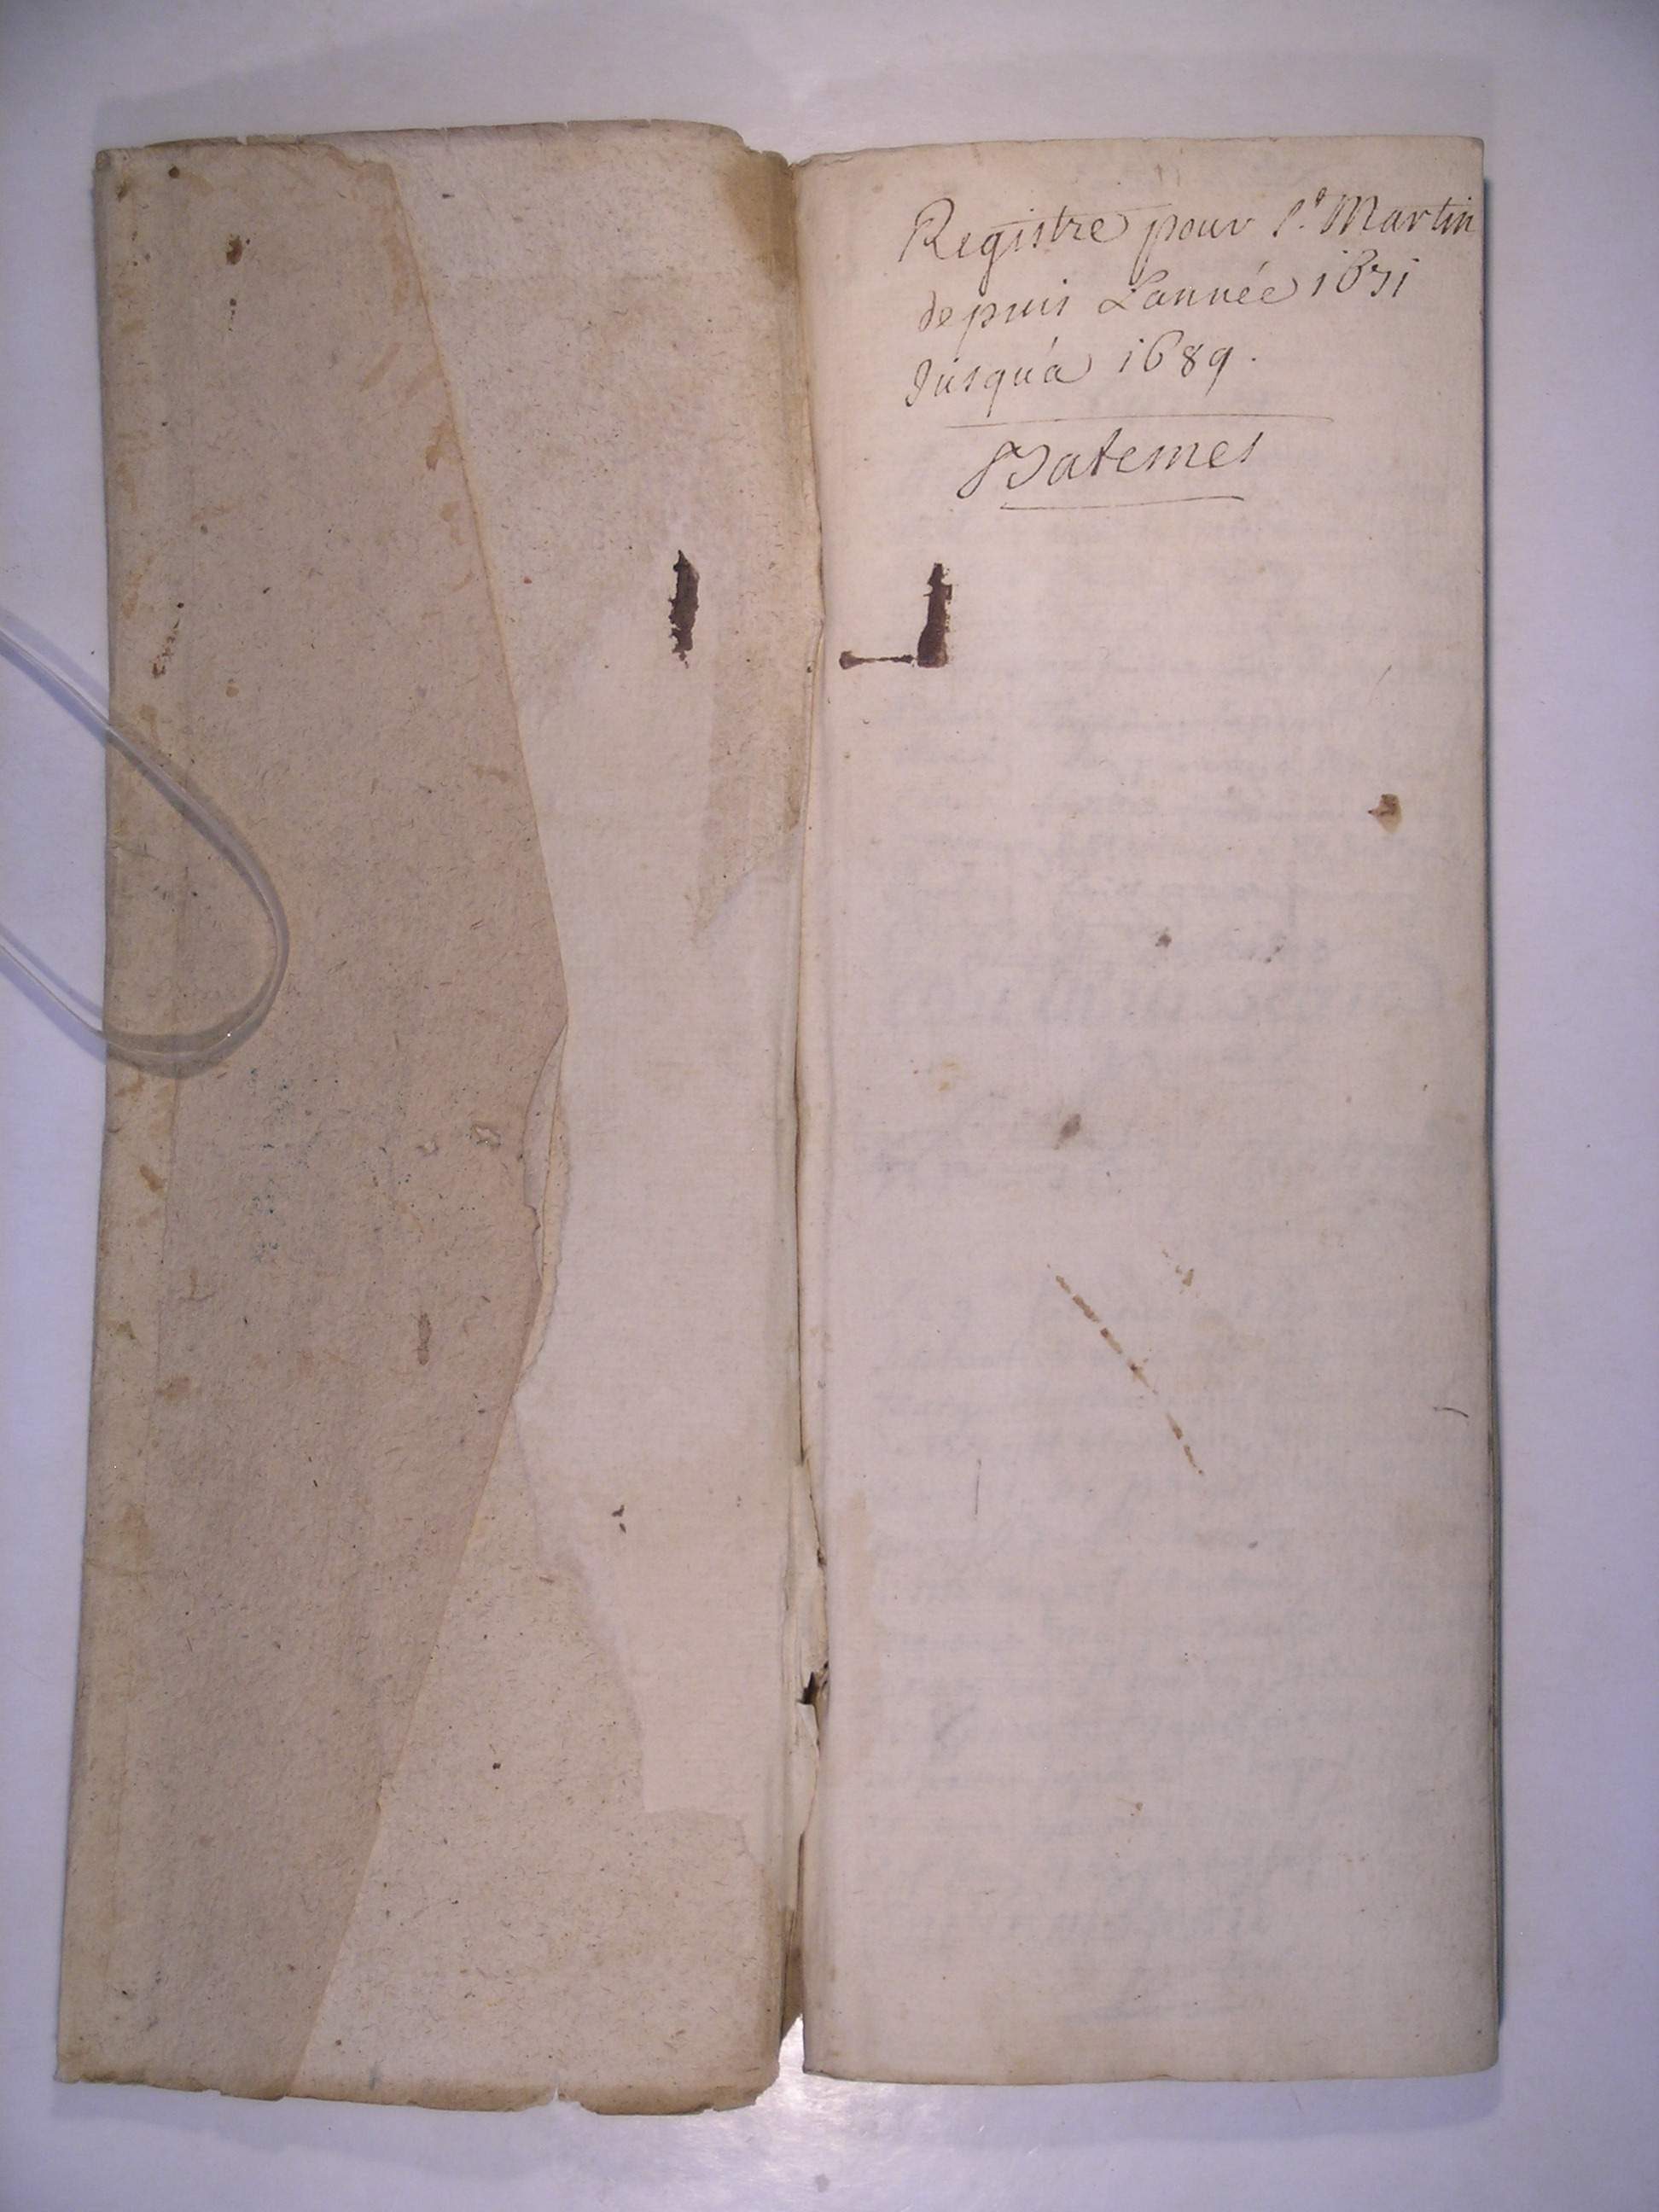 Registre pour S.t Martin
depuis L'année 1671
Jusqu'a 1689.
Batemes